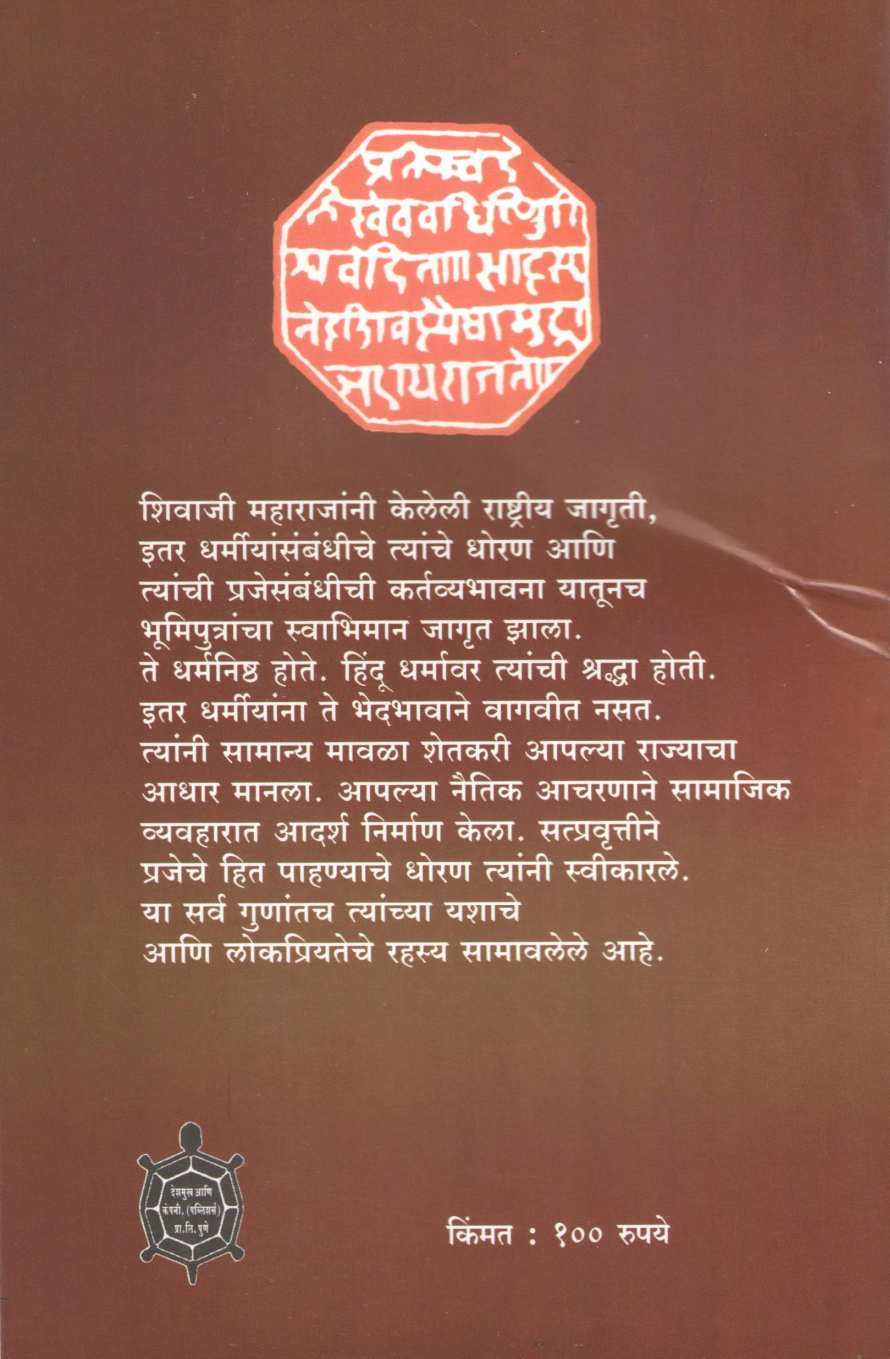 प्रतिपच्चंद्र
लेखेव वर्धिष्णुर्वि
श्ववंदिता शाहसू
नोः शिवस्यैषा मुद्रा
भद्राय राजते
शिवाजी महाराजांनी केलेली राष्ट्रीय जागृती,
इतर धर्मीयांसंबंधीचे त्यांचे धोरण आणि
त्यांची प्रजेसंबंधीची कर्तव्यभावना यातूनच
भूमिपुत्रांचा स्वाभिमान जागृत झाला.
ते धर्मनिष्ठ होते. हिंदू धर्मावर त्यांची श्रद्धा होती.
इतर धर्मीयांना ते भेदभावाने वागवीत नसत.
त्यांनी सामान्य मावळा शेतकरी आपल्या राज्याचा
आधार मानला. आपल्या नैतिक आचरणाने सामाजिक
व्यवहारात आदर्श निर्माण केला. सत्प्रवृत्तीने
प्रजेचे हित पाहण्याचे धोरण त्यांनी स्वीकारले.
या सर्व गुणांतच त्यांच्या यशाचे
आणि लोकप्रियतेचे रहस्य सामावलेले आहे.
देशमुख आणि
कंपनी, (पब्लिशर्स)
प्रा.लि. पुणे
किंमत : १०० रुपये